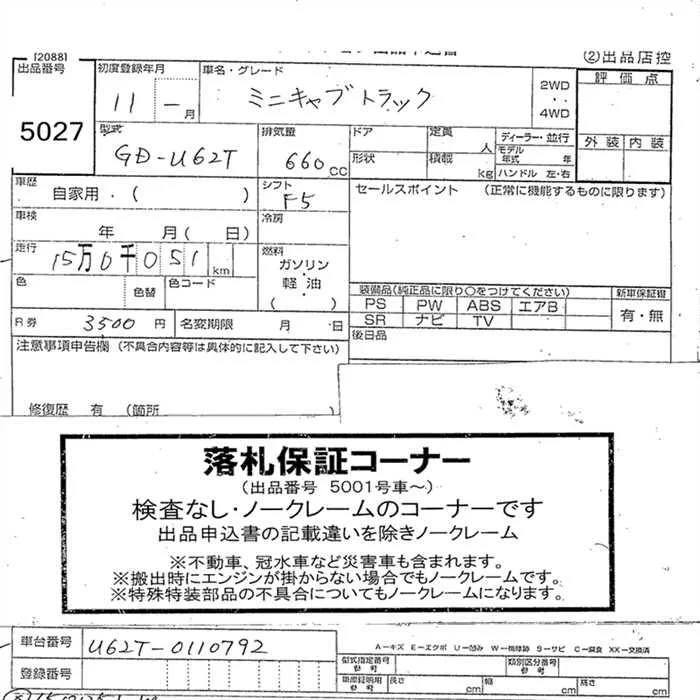 [2088]
②出品店控
出品番号
5027
初度登録年月
11 - 月
車名・グレード
ミニキャブトラック
2WD
・・
4WD
評価点
外装 内装
型式
GD-U62T
排気量
660 CC
ドア
形状
定員 人
積載 kg
ディーラー・並行
モデル年式 年
ハンドル 左・右
車歴
自家用・( )
シフト
F5
セールスポイント (正常に機能するものに限ります)
車検
年 月( 日)
冷房
走行
15万0千051 km
燃料
ガソリン
・
軽油
・
( )
色
色替
色コード
装備品(純正品に限り〇をつけてください)
新車保証書
PS PW ABS エアB
SR ナビ TV
有・無
R券
3500 円
名変期限 月 日
後日品
注意事項申告欄 (不具合内容等は具体的に記入して下さい)
修復歴 有 (箇所
落札保証コーナー
(出品番号 5001号車~)
検査なし・ノークレームのコーナーです
出品申込書の記載違いを除きノークレーム
※不動車、冠水車など災害車も含まれます。
※搬出時にエンジンが掛からない場合でもノークレームです。
※特殊特装部品の不具合についてもノークレームになります。
車台番号
U62T-0110792
A-キズ E-エクボ U-凹み W-補修跡 S-サビ C-腐食 XX-交換済
登録番号
型式指定番号
参考
類別区分番号
参考
車庫証明用
参考
長さ cm
幅 cm
高さ cm